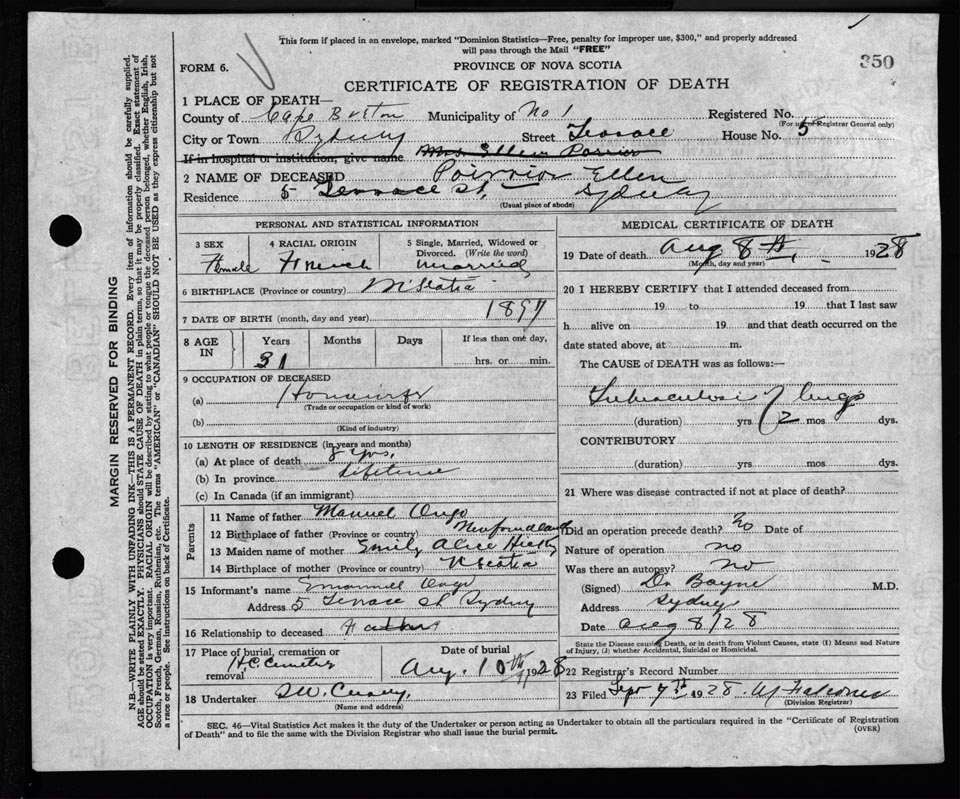 This form if placed in an envelope, marked "Dominion Statistics—Free, penalty for improper use, $300," and properly addressed
will pass through the Mail "FREE"
FORM 6.
PROVINCE OF NOVA SCOTIA
350
CERTIFICATE OF REGISTRATION OF DEATH
1 PLACE OF DEATH—
County of Cape Breton Municipality of No 1 Registered No.
(For use of Registrar General only)
City or Town Sydney Street Terrace House No. 5
If in hospital or institution, give name Mrs Ellen Poirrior
2 NAME OF DECEASED Poirrior Ellen
Residence 5 Terrace St, Sydney
(Usual place of abode)
PERSONAL AND STATISTICAL INFORMATION
3 SEX 4 RACIAL ORIGIN 5 Single, Married, Widowed or
Divorced. (Write the word)
Female French Married
6 BIRTHPLACE (Province or country) N. Scotia
7 DATE OF BIRTH (month, day and year) 1897
8 AGE IN Years Months Days If less than one day,
31 hrs. or min.
9 OCCUPATION OF DECEASED
(a) Housewife
(Trade or occupation or kind of work)
(b)
(Kind of industry)
10 LENGTH OF RESIDENCE (in years and months)
(a) At place of death 8 yrs,
(b) In province lifetime
(c) In Canada (if an immigrant)
Parents
11 Name of father Manuel
12 Birthplace of father (Province or country) Newfoundland
13 Maiden name of mother Emily Alice
14 Birthplace of mother (Province or country) N Scotia
15 Informant's name Emanuel
Address 5 Terrace St Sydney
16 Relationship to deceased Father
17 Place of burial, cremation or removal Date of burial
H.C. Cemetery Aug. 10th 1928
18 Undertaker
(Name and address)
MEDICAL CERTIFICATE OF DEATH
19 Date of death Aug 8th, 1928
(Month, day and year)
20 I HEREBY CERTIFY that I attended deceased from
19 to 19 that I last saw
h alive on 19 and that death occurred on the
date stated above, at m.
The CAUSE of DEATH was as follows:—
Tuberculosis of lungs
(duration) yrs 2 mos dys.
CONTRIBUTORY
(duration) yrs mos dys.
21 Where was disease contracted if not at place of death?
Did an operation precede death? No Date of
Nature of operation no
Was there an autopsy? No
(Signed) Dr Bayne M.D.
Address Sydney
Date Aug 8/28
State the Disease causing Death, or in death from Violent Causes, state (1) Means and Nature
of Injury, (2) whether Accidental, Suicidal or Homicidal.
22 Registrar's Record Number
23 Filed Sept 7th 1928.
(Division Registrar)
SEC. 46—Vital Statistics Act makes it the duty of the Undertaker or person acting as Undertaker to obtain all the particulars required in the "Certificate of Registration
of Death" and to file the same with the Division Registrar who shall issue the burial permit.
(OVER)
MARGIN RESERVED FOR BINDING
N.B.—WRITE PLAINLY WITH UNFADING INK—THIS IS A PERMANENT RECORD. Every item of information should be carefully supplied.
AGE should be stated EXACTLY. PHYSICIANS should STATE CAUSE OF DEATH in plain terms, so that it may be properly classified. Exact statement of
OCCUPATION is very important. RACIAL ORIGIN will be described by stating to what people or tongue the deceased person belonged, whether English, Irish,
Scotch, French, German, Russian, Ruthenian, etc. The terms "AMERICAN" or "CANADIAN" SHOULD NOT BE USED as they express citizenship but not
a race or people. See instructions on back of Certificate.